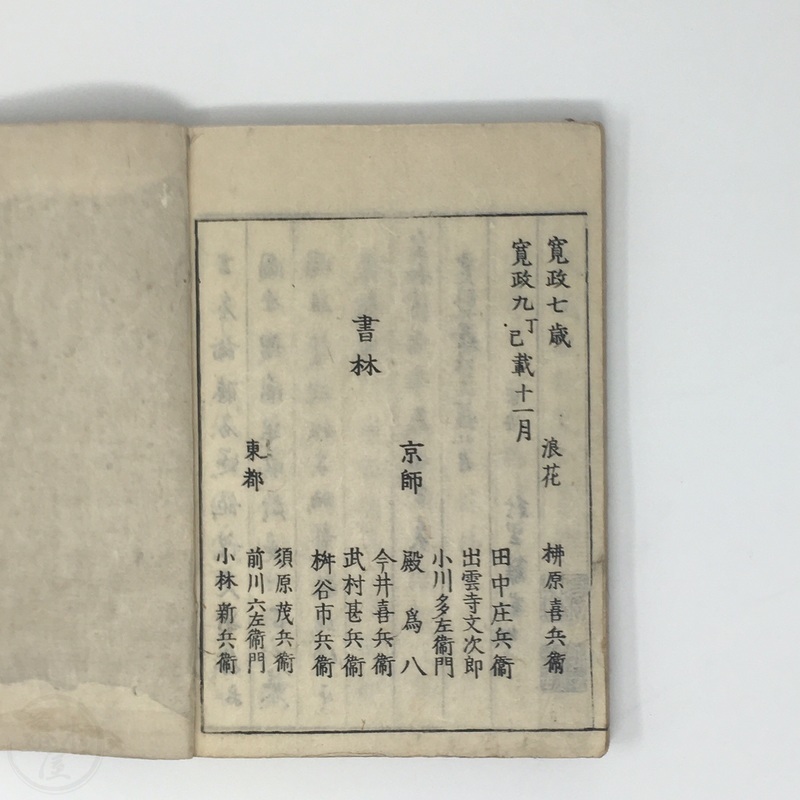 寛政七歳
浪花
柳原喜兵衞
寛政九丁巳載十一月
田中庄兵衞
出雲寺文次郎
小川多左衞門
京師
殿爲八
今井喜兵衞
武村甚兵衞
書林
桝谷市兵衞
須原茂兵衞
東都
前川六左衞門
小林新兵衞